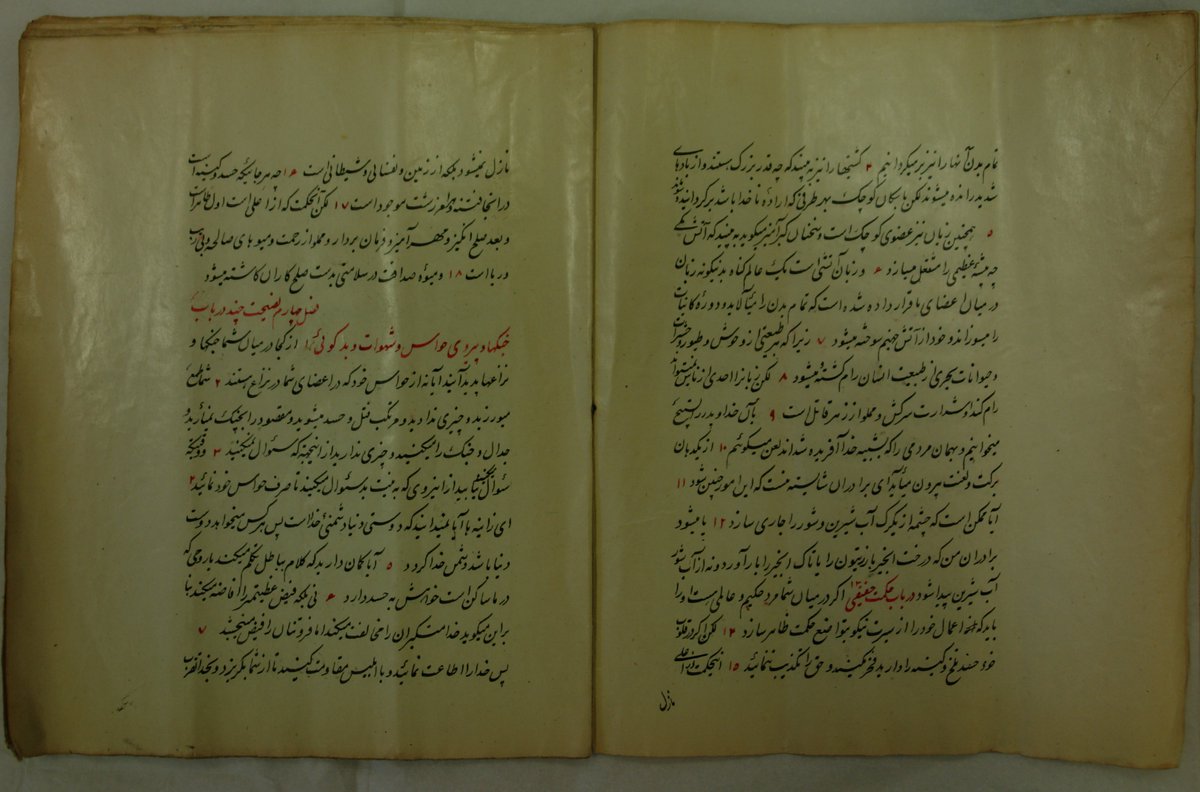 تمام بدن آنها را نیز بر میگردانیم ۴ کشتیها را نیز به بینید که چه قدر بزرگ هستند و از بادهای
شدید رانده میشوند لکن با سکان کوچک بهر طرفی که اراده ناخدا باشد برگردانیده
۵ همچنین زبان نیز عضوی کوچک است و سخنان کبرآمیز میگوید به بینید که آتش
چه بیشه عظیمی را مشتعل میسازد ۶ و زبان آتشی است بلکه عالم کناه بدینگونه زبان
در میان اعضای ما قرار داده شده است که تمام بدن را میآلاید و دوره کاینات
را میسوزاند و خود از آتش جهنم سوخته میشود ۷ زیرا که هر طبیعتی از وحوش و طیور و حشرات
و حیوانات بحری از طبیعت انسان رام کشته میشود ۸ لکن زبانرا احدی از ناس
رام کند و شرارت سرکش و مملو از زهر قاتل است ۹ بآن خدا و پدر را تسبیح
میخوانیم و بهمان مردمی را که بشبیه خدا آفریده شده‌اند لعن میکوئیم ۱۰ از یکدهان
برکت و لعنت بیرون میآید ای برادران شایسته نیست که این امور چنین شود ۱۱
آیا ممکن است که چشمه از یک رک آب شیرین و شور را جاری سازد ۱۲ یا میشود
برادران من که درخت انجیر بار زیتون را یا تاک انجیر را بار آورد و نه از آب شور
آب شیرین پیدا شود در باب حکمت حقیقی ۱۳ اکر در میان شما مرد حکیم و عالمی هست او را
باید که اعمال خود را از سیرت نیکو بتواضع حکمت ظاهر سازد ۱۴ لکن اکر در قلوب
خود حسد تلخ و کینه را دارید فخر نکنید و حق را تکذیب ننمائید ۱۵ اینحکمت از اعلی
نازل
نازل نمیشود بلکه از زمین و نفسانی و شیطانی است ۱۶ چه هر جائیکه حسد و کینه است
در آنجا فتنه و هر امر زشت موجود است ۱۷ لکن آنحکمت که از اعلی است اول طاهر است
و بعد صلح انگیز و مهرآمیز و فرمان بردار و مملو از رحمت و میوهای صالحه و بی ریب
و ریا است ۱۸ و میوه صداقت در سلامتی بدست صلح کاران کاشته میشود
فصل چهارم نصیحت چند در باب
جنکها و پیروی حواس و شهوات و بد کوئی ۱ از کجا در میان شما جنکها و
نزاعها پدید آیند آیا نه از حواس خود که در اعضای شما در نزاع هستند ۲ شما طمع
میورزید و چیزی ندارید و مرتکب قتل و حسد میشوید و مقصود را بچنک نمیآرید و
جدال و جنک را میکنید و چیزی ندارید از اینجهة که سؤال نمیکنید ۳ و وقتیکه
سؤال میکنید نمییابید از اینروی که به نیت بد سؤال میکنید تا صرف حواس خود نمائید ۴
ای زانیه ها آیا نمیدانید که دوستی دنیا دشمنی خداست پس هر کس میخواهد دوست
دنیا باشد دشمن خدا کردد ۵ آیا کمان دارید که کلام بباطل تکلم میکند یا روحی که
در ما ساکن است خواهش به حسد دارد ۶ نی بلکه فیض عظیمتر را افاضه میکند بنا
بر این میکوید خدا متکبران را مخالفت میکند اما فروتنان را فیض میبخشد ۷
پس خدا را اطاعت نمائید و با ابلیس مقاومت کنید تا از شما بگریزد و بخدا تقرب